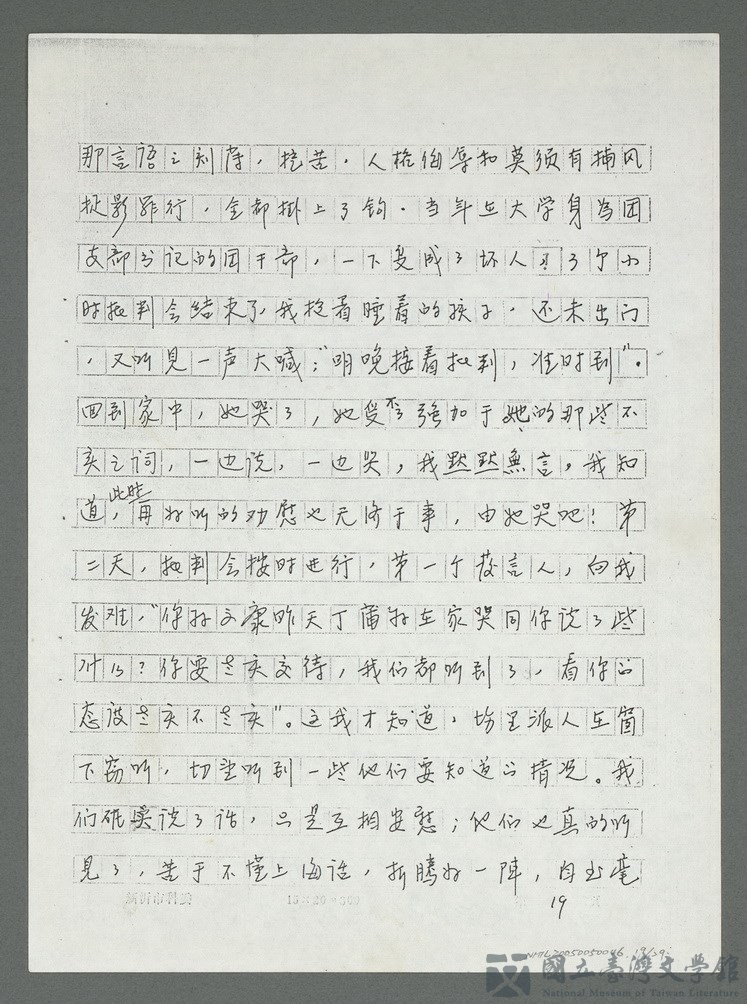 那言语之刻薄，挖苦，人格侮辱和莫须有捕风
捉影罪行，全都掛上了钩。当年在大学身為团
支部书记的团干部，一下变成了坏人
时批判会结束了，我抱着睡着的孩子，还未出门
，又听见一声大喊："明晚接着批判，准时到"。
回到家中，她哭了，她受不了强加于她的那些不
实之词，一边说，一边哭，我默默無言，我知
道，此時再好听的劝慰也无济于事，由她哭吧！第
二天，批判会按时进行，第一个發言人，向我
发难，"你孙文康昨天丁蒲好在家哭同你说了些
什么？你要老实交待，我们都听到了，看你的
态度老实不老实"。这我才知道，场里派人在窗
下窃听，切望听到一些他们要知道的情况。我
们砥實说了话，只是互相安慰；他们也真的听
見了，苦于不懂上海话，折腾好一陣，自出毫
15×20=300
19
NMTL20050050046 19/29
國立臺灣文學館
National Museum of Taiwan Literature